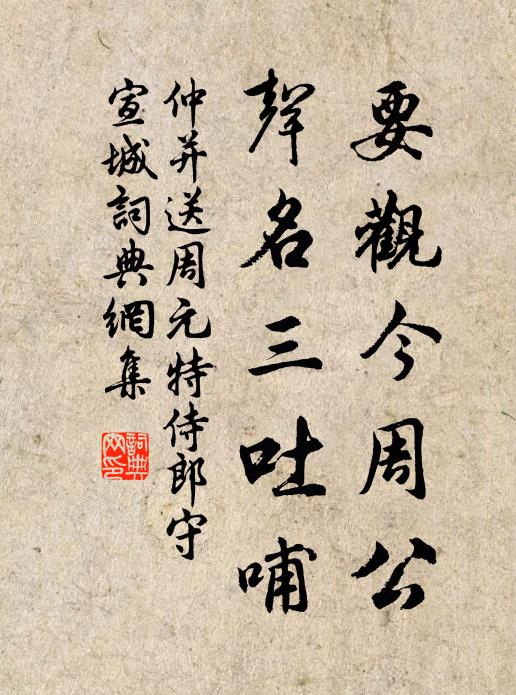 要觀今周公
聲名三吐哺
仲并送周元特侍郎守
宣城詞典網集
詞典
网印